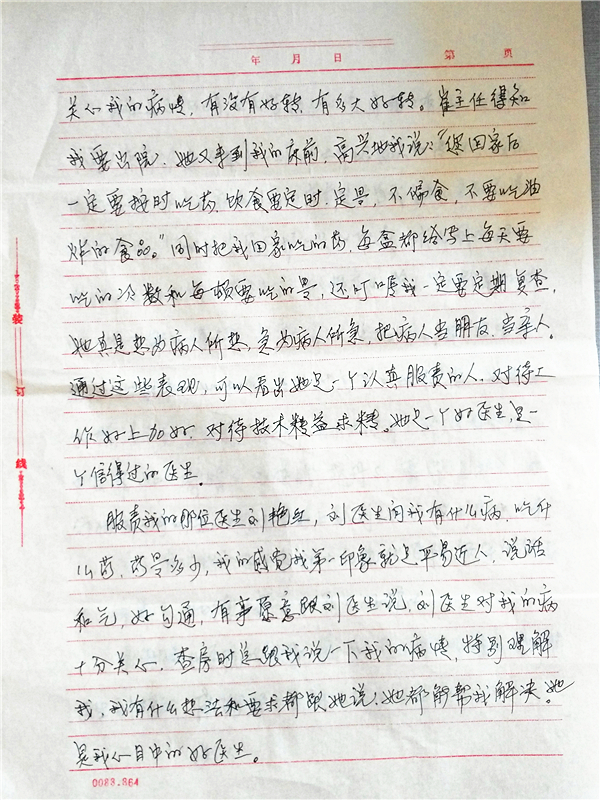 年 月 日 第 页
关心我的病情,有没有好转,有多大好转。崔主任得知
我要出院,她又来到我的床前,高兴地我说:“您回家后
一定要按时吃药,饮食要定时、定量,不偏食,不要吃油
炸的食品。”同时把我回家吃的药,每盒都给写上每天要
吃的次数和每顿要吃的量,还叮嘱我一定要定期复查,
她真是想为病人所想,急为病人所急,把病人当朋友、当亲人。
通过这些表现,可以看出她是一个认真服责的人,对待工
作好上加好,对待技术精益求精。她是一个好医生,是一
个信得过的医生。
服责我的那位医生刘艳红,刘医生问我有什么病,吃什
么药,药量多少,我的感觉我第一印象就是平易近人,说话
和气,好勾通,有事愿意跟刘医生说,刘医生对我的病
十分关心,查房时总跟我说一下我的病情,特别理解
我,我有什么想法和要求都跟她说,她都能帮我解决。她
是我心目中的好医生。
装
订
线
0083.864